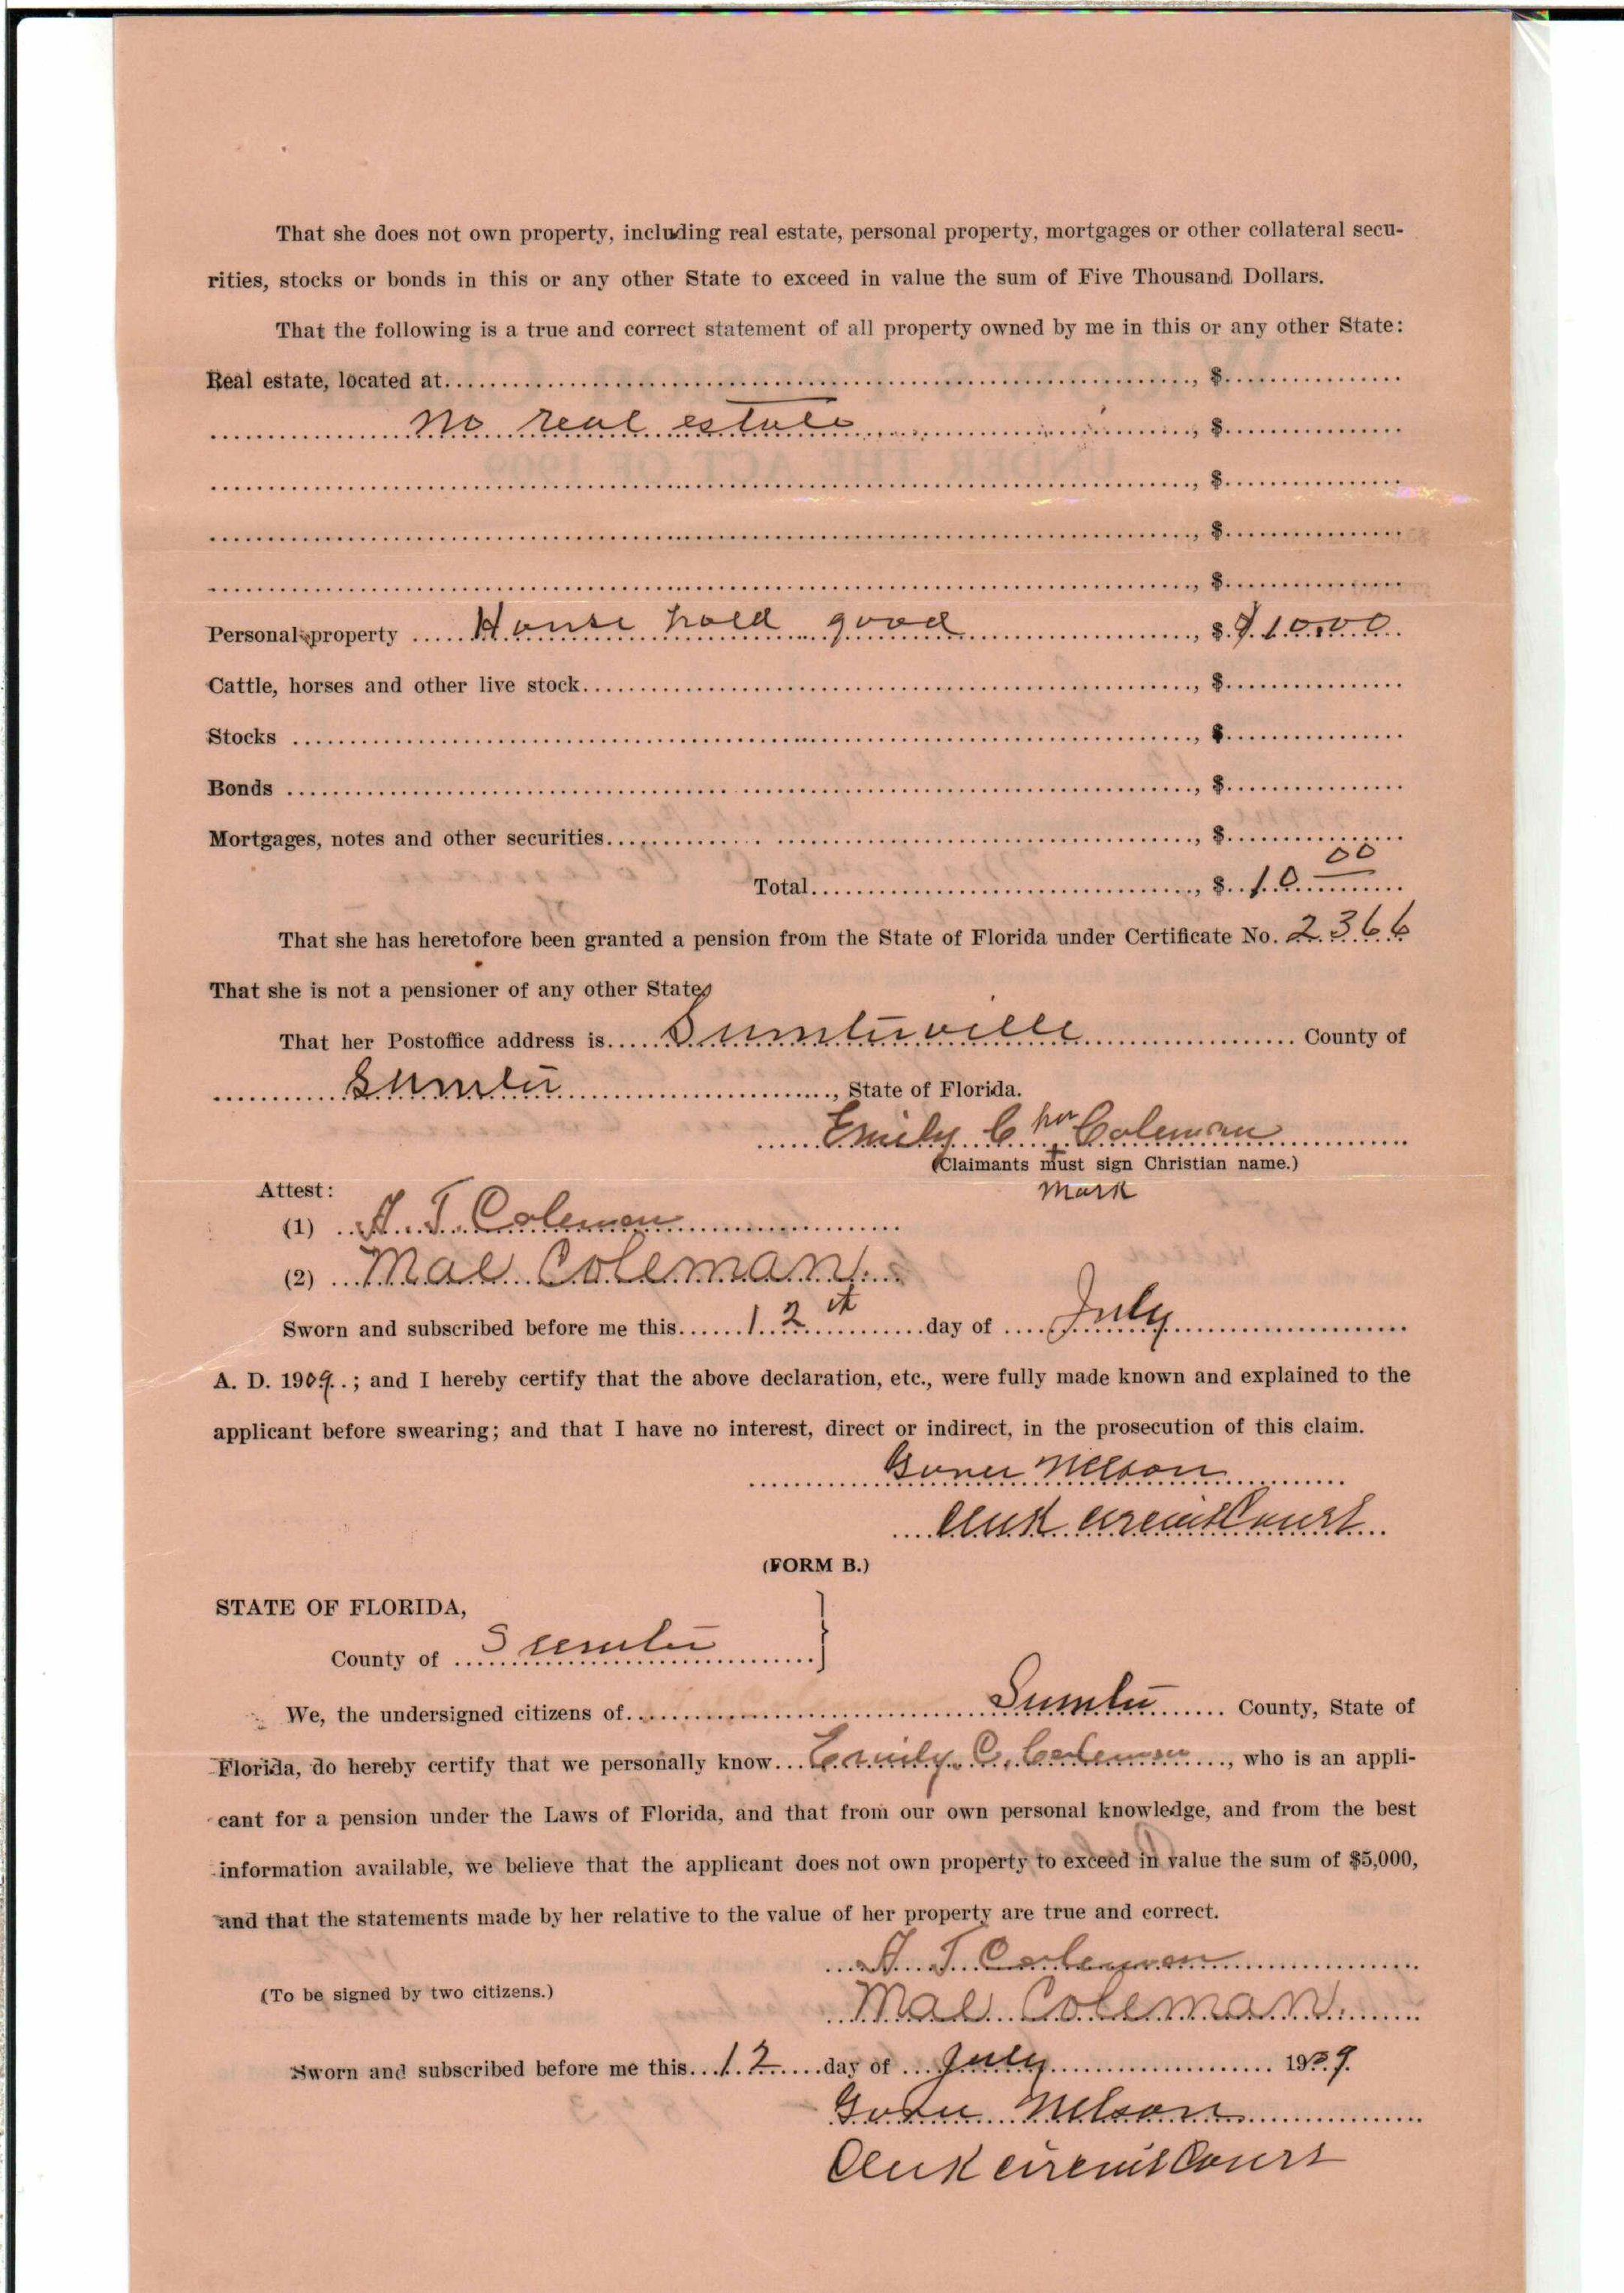 That she does not own property, including real estate, personal property, mortgages or other collateral secu-
rities, stocks or bonds in this or any other State to exceed in value the sum of Five Thousand Dollars.
That the following is a true and correct statement of all property owned by me in this or any other State:
Real estate, located at ........, $........
No real estate ........, $........
........, $........
........, $........
........, $........
Personal property .... House hold good ........, $ $10.00
Cattle, horses and other live stock ........, $........
Stocks ........, $........
Bonds ........, $........
Mortgages, notes and other securities ........, $........
Total ........, $ 10 00
That she has heretofore been granted a pension from the State of Florida under Certificate No. 2366
That she is not a pensioner of any other State,
That her Postoffice address is .... Sumterville ........ County of
.... Sumter ........, State of Florida.
Emily C her Coleman
+
(Claimants must sign Christian name.)
Mark
Attest:
(1) A. T. Coleman
(2) Mae Coleman
Sworn and subscribed before me this .... 12th .... day of .... July ....
A. D. 1909..; and I hereby certify that the above declaration, etc., were fully made known and explained to the
applicant before swearing; and that I have no interest, direct or indirect, in the prosecution of this claim.
Nelson
Clerk Circuit Court
(FORM B.)
STATE OF FLORIDA,
County of .... Sumter .... }
We, the undersigned citizens of ........ Sumter .... County, State of
Florida, do hereby certify that we personally know ... Emily C. Coleman ...., who is an appli-
cant for a pension under the Laws of Florida, and that from our own personal knowledge, and from the best
information available, we believe that the applicant does not own property to exceed in value the sum of $5,000,
and that the statements made by her relative to the value of her property are true and correct.
A. T. Coleman
(To be signed by two citizens.)
Mae Coleman
Sworn and subscribed before me this ... 12 .... day of ... July ........ 1909.
Nelson
Clerk Circuit Court